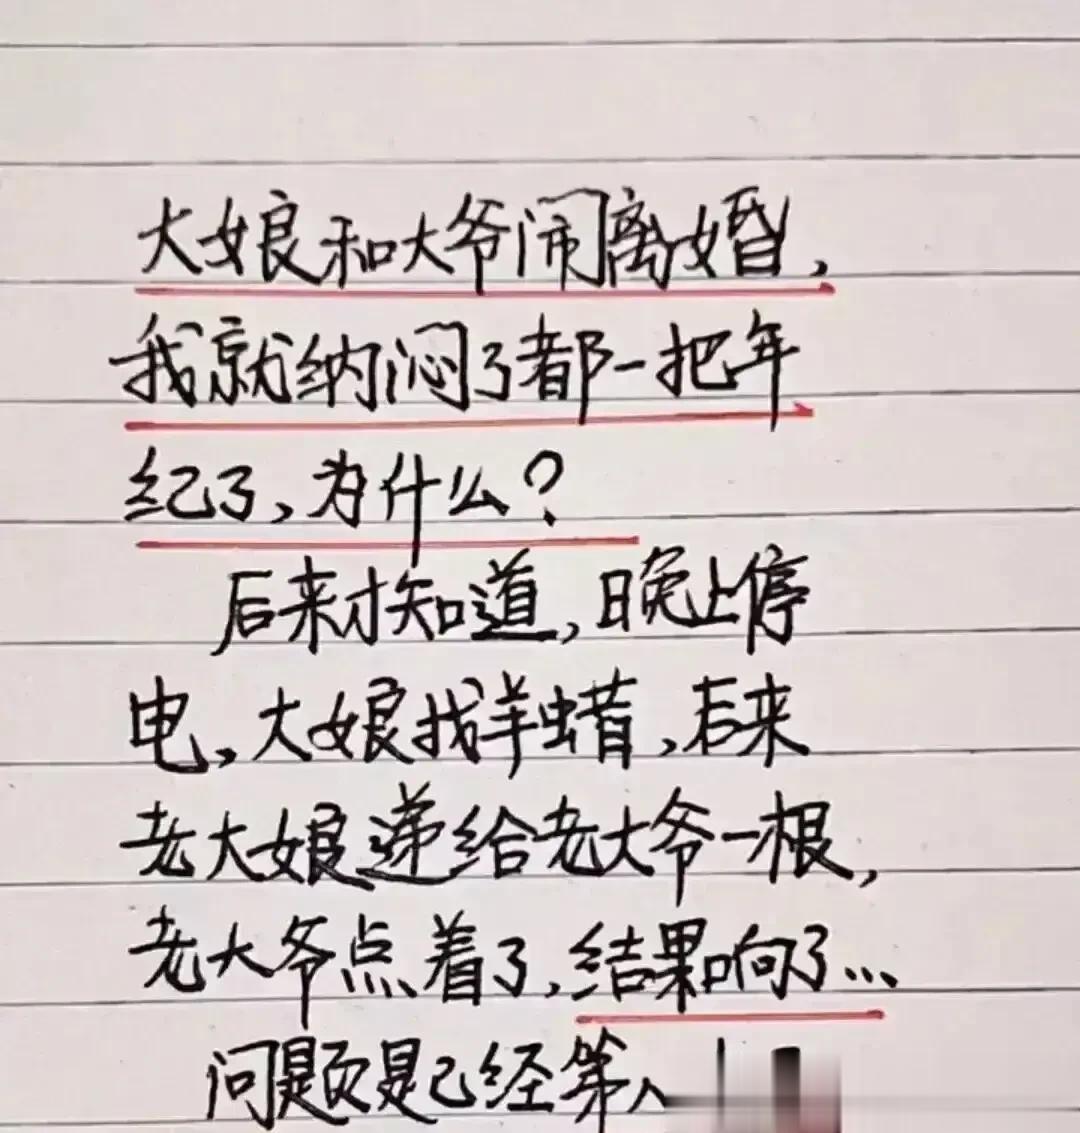 大娘和大爷闹离婚,
我就纳闷了都一把年
纪了,为什么?
后来才知道,晚上停
电,大娘找羊蜡,后来
老大娘递给老大爷一根,
老大爷点着了,结果响了...
问题是已经第八